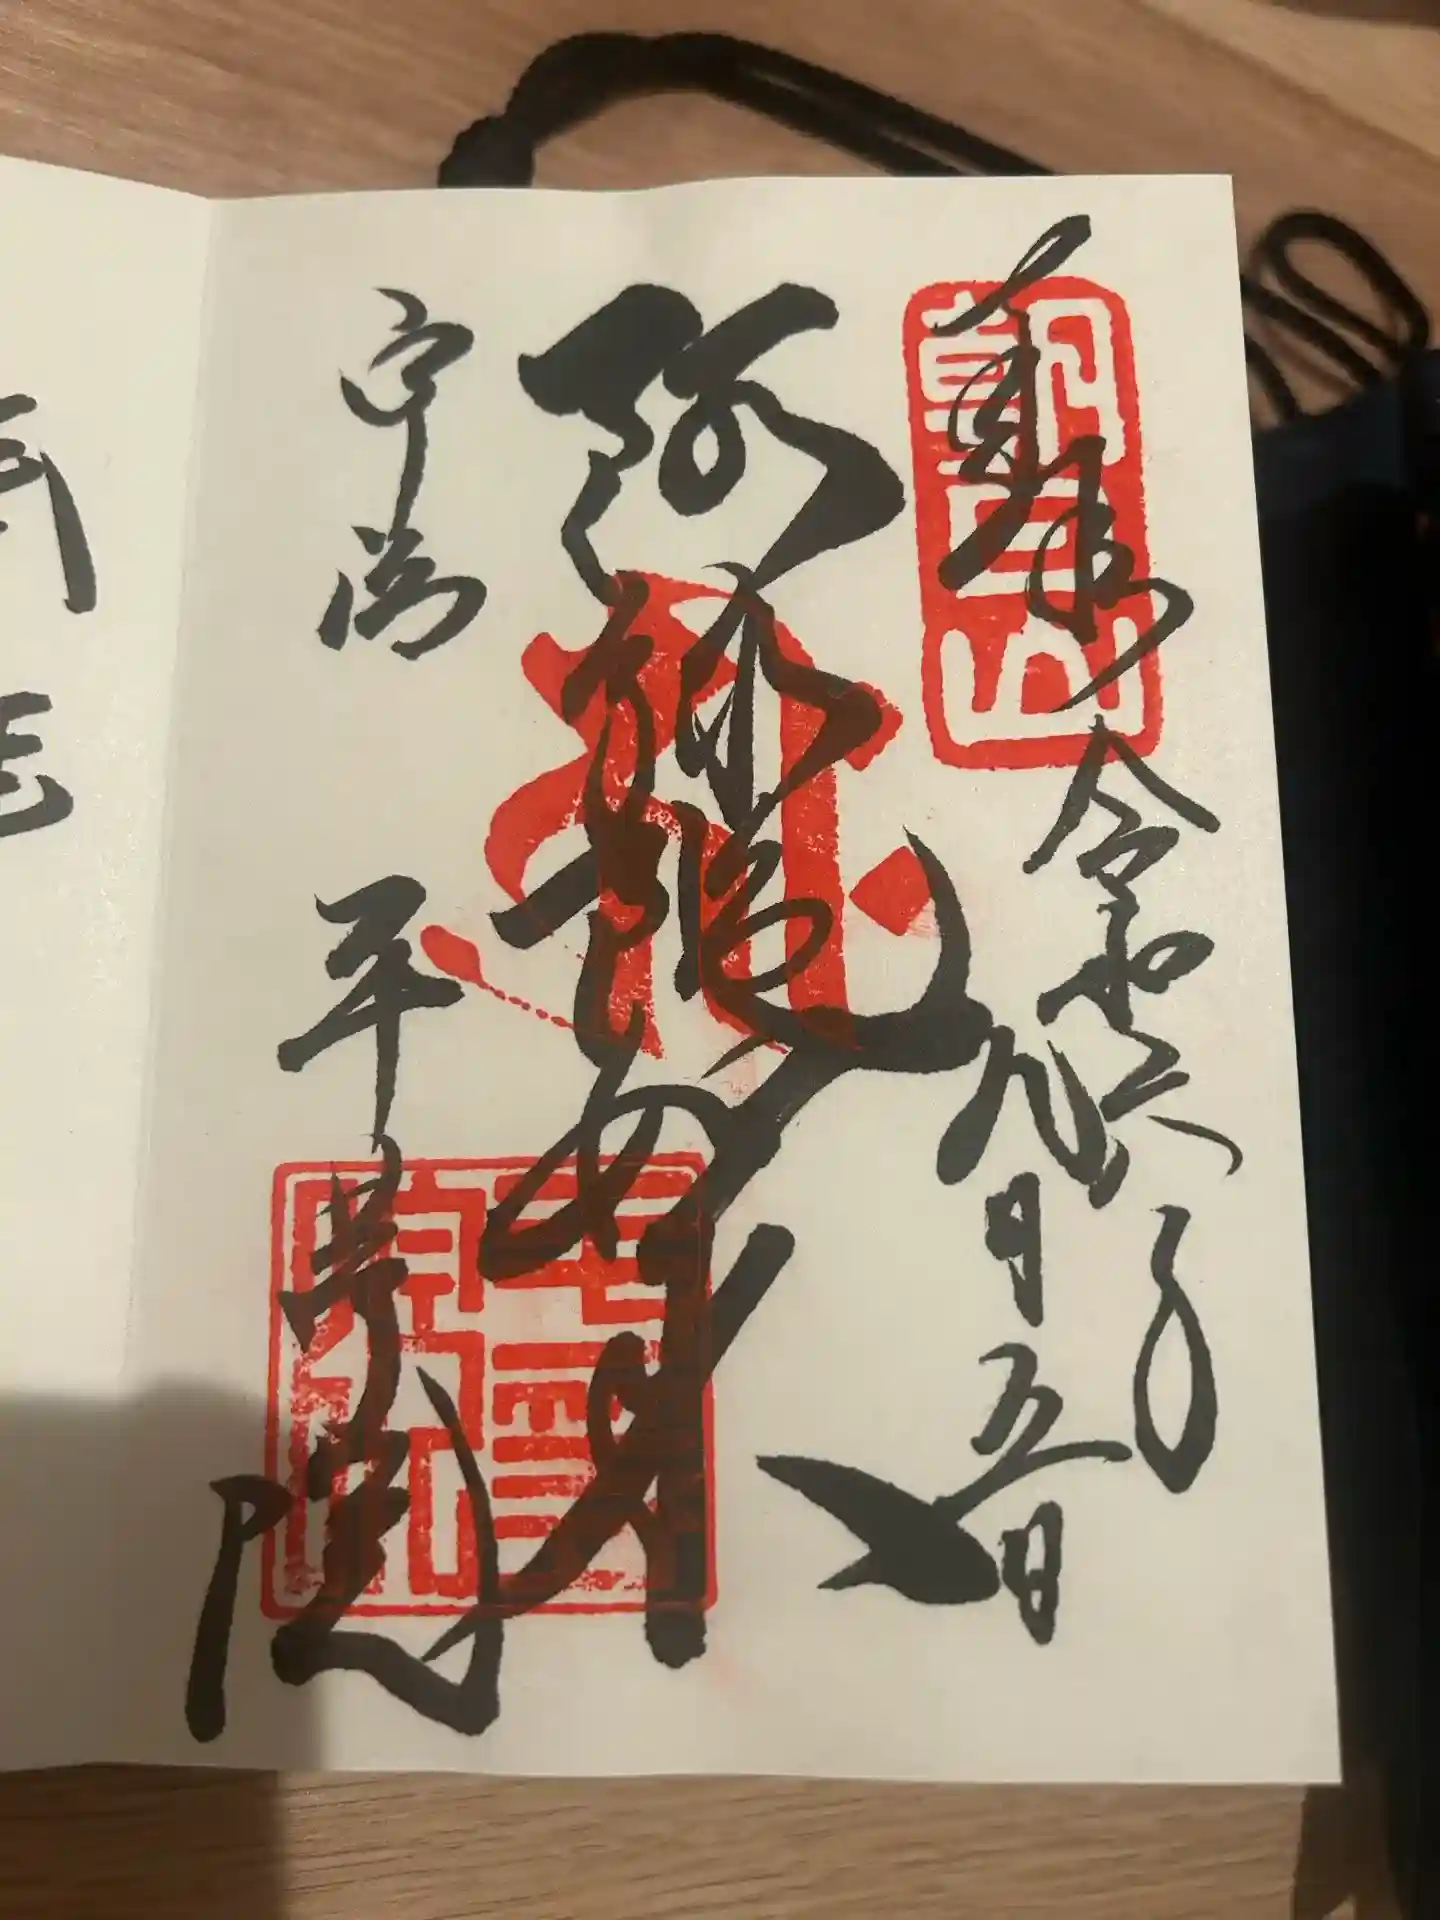 朝日山
奉拝
令和六年
九月五日
阿弥陀如来
宇治 平等院
平等院印